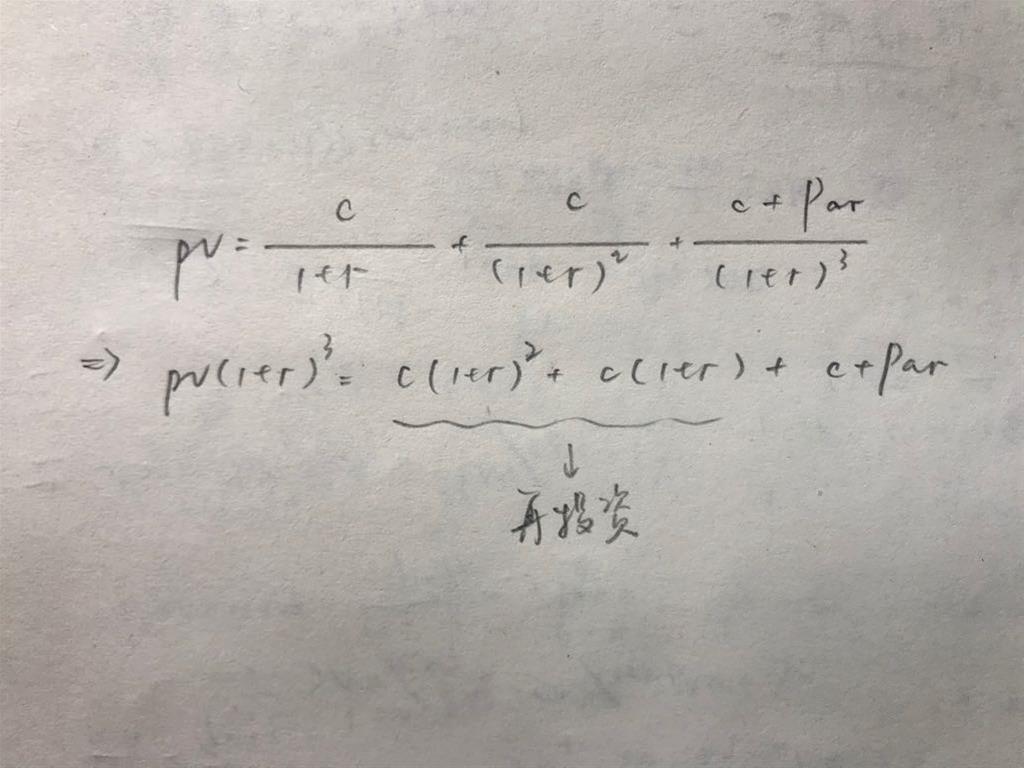 pv = c/(1+r) + c/(1+r)² + (c + Par)/(1+r)³
=> pv(1+r)³ = c(1+r)² + c(1+r) + c+Par
↓
再投资